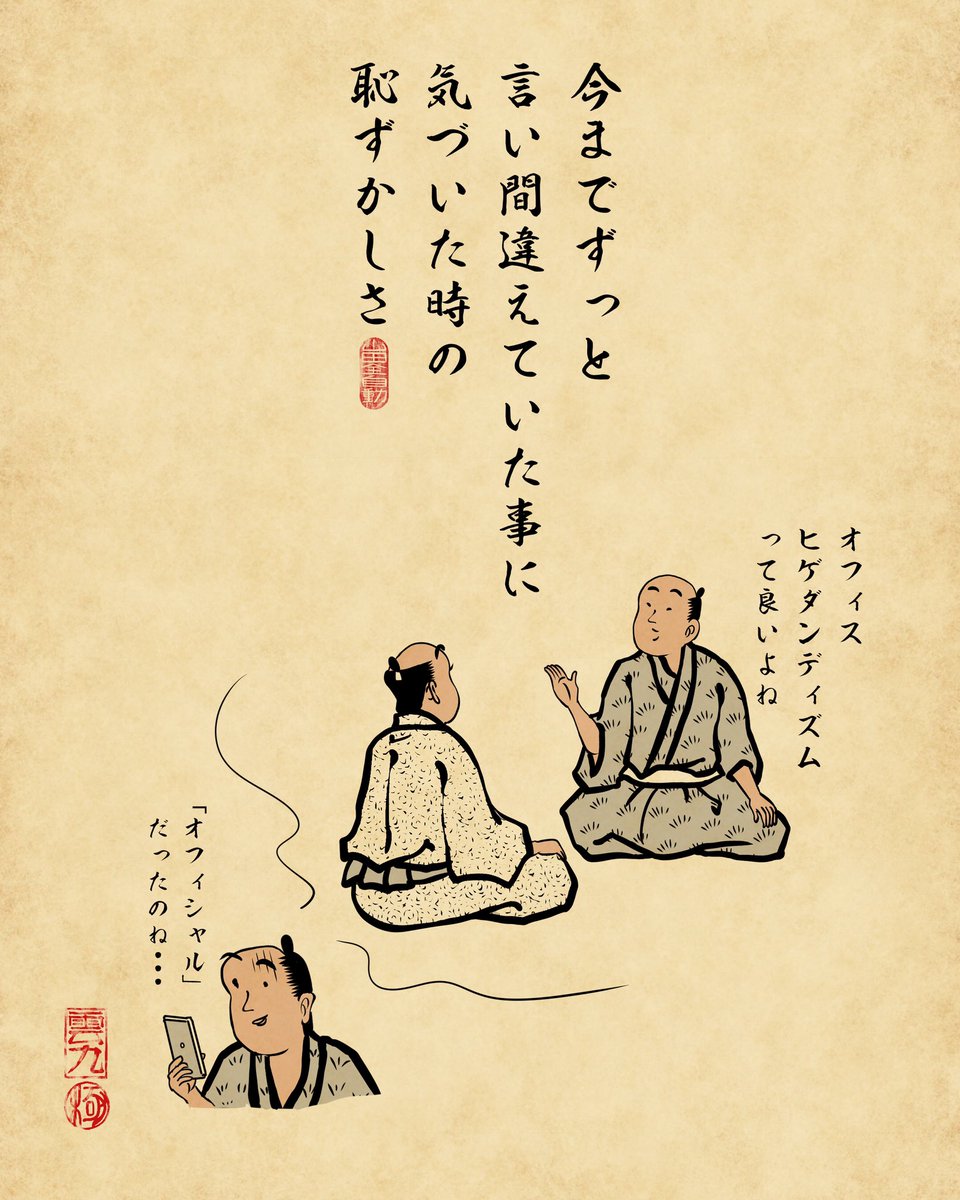 今までずっと
言い間違えていた事に
気づいた時の
恥ずかしさ
オフィス
ヒゲダンディズム
って良いよね
「オフィシャル」
だったのね・・・